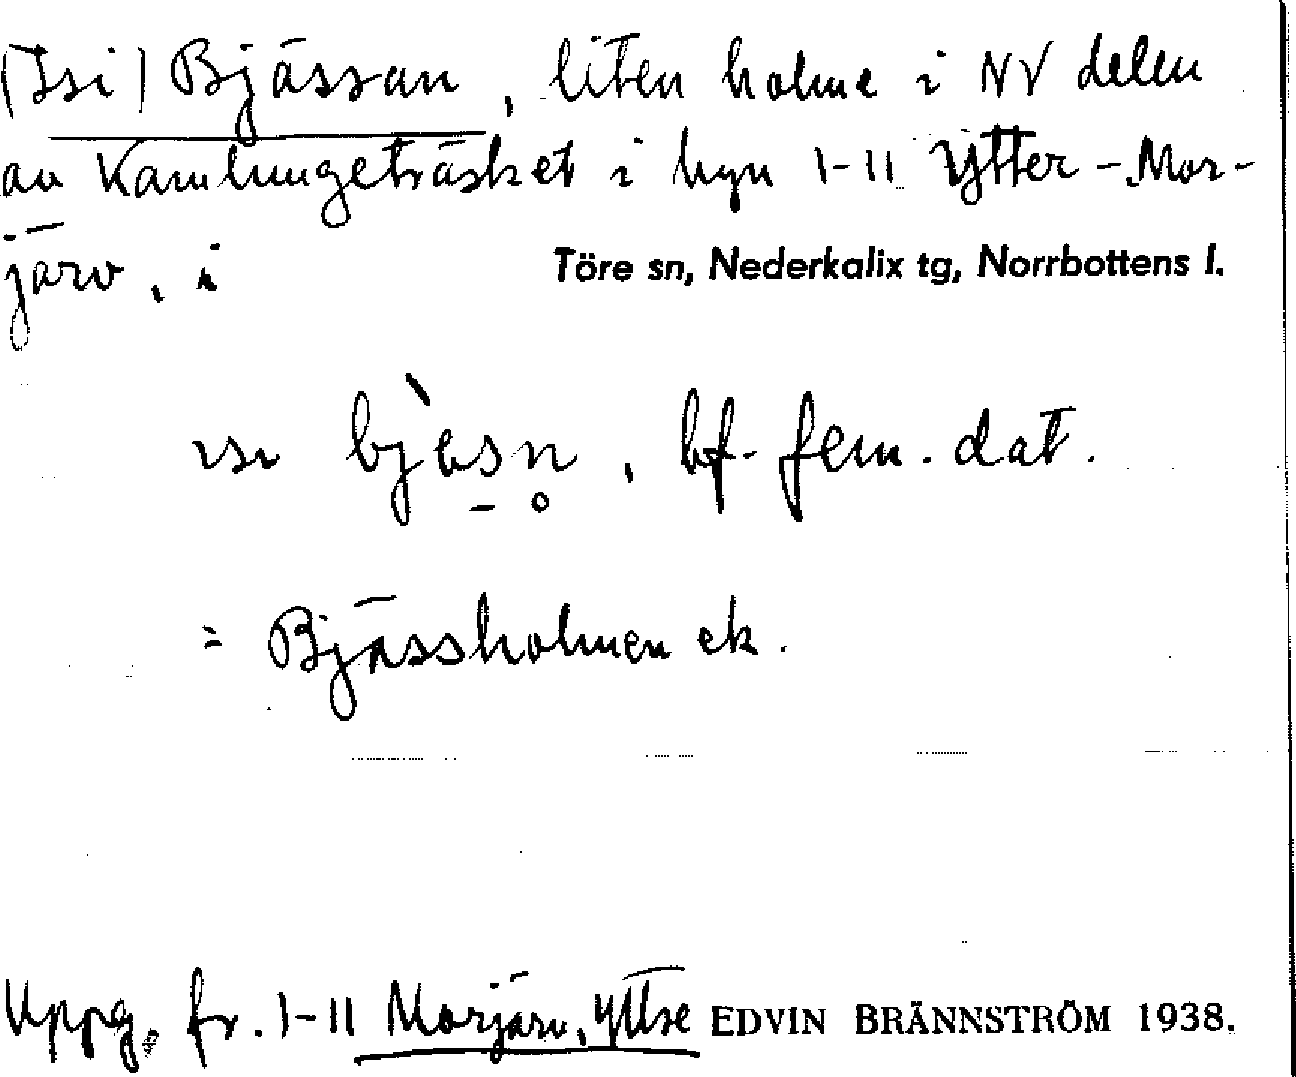 (Isi) Bjässan, liten holme i NV delen
av Kamlungeträsket i byn 1-11 Ytter-Mor-
järv, i Töre sn, Nederkalix tg, Norrbottens l.
bf. fem. dat.
= Bjässholmen ek.
Uppg. fr. 1-11 Morjärv, Yttre EDVIN BRÄNNSTRÖM 1938.